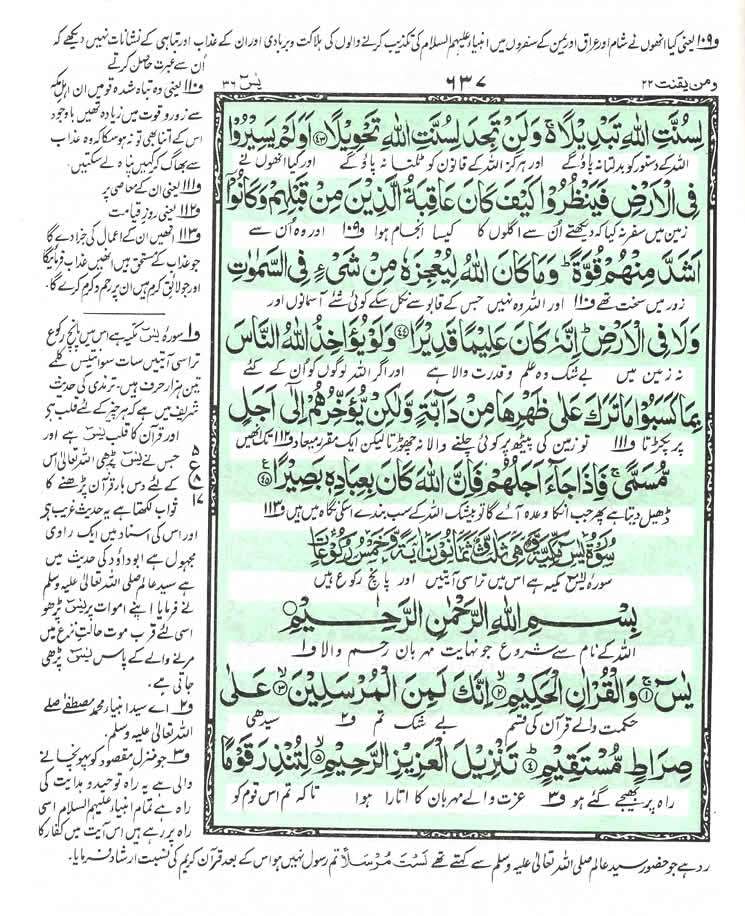 و۱۰۹ یعنی کیا انھوں نے شام اور عراق اور یمن کے سفروں میں انبیاء علیہم السلام کی تکذیب کرنے والوں کی ہلاکت و بربادی اور ان کے عذاب اور تباہی کے نشانات نہیں دیکھے کہ
اُن سے عبرت حاصل کرتے
ومن یقنت ۲۲
۶۳۷
یٰسٓ ۳۶
لِسُنَّتِ اللّٰهِ تَبْدِيْلًا ۚ وَلَنْ تَجِدَ لِسُنَّتِ اللّٰهِ تَحْوِيْلًا ﴿۴۳﴾ اَوَلَمْ يَسِيْرُوْا
اللہ کے دستور کو بدلتا نہ پاؤ گے اور ہرگز اللہ کے قانون کو ٹلتا نہ پاؤ گے اور کیا انھوں نے
فِي الْاَرْضِ فَيَنْظُرُوْا كَيْفَ كَانَ عَاقِبَةُ الَّذِيْنَ مِنْ قَبْلِهِمْ وَكَانُوْۤا
زمین میں سفر نہ کیا کہ دیکھتے اُن سے اگلوں کا کیسا انجام ہوا و۱۰۹ اور وہ اُن سے
اَشَدَّ مِنْهُمْ قُوَّةً ؕ وَمَا كَانَ اللّٰهُ لِيُعْجِزَهٗ مِنْ شَيْءٍ فِي السَّمٰوٰتِ
زور میں سخت تھے و۱۱۰ اور اللہ وہ نہیں جس کے قابو سے نکل سکے کوئی شے آسمانوں اور
وَلَا فِي الْاَرْضِ ؕ اِنَّهٗ كَانَ عَلِيْمًا قَدِيْرًا ﴿۴۴﴾ وَلَوْ يُؤَاخِذُ اللّٰهُ النَّاسَ
نہ زمین میں بے شک وہ علم و قدرت والا ہے اور اگر اللہ لوگوں کو اُن کے کئے
بِمَا كَسَبُوْا مَا تَرَكَ عَلٰى ظَهْرِهَا مِنْ دَآبَّةٍ وَّلٰكِنْ يُّؤَخِّرُهُمْ اِلٰۤى اَجَلٍ
پر پکڑتا و۱۱۱ تو زمین کی پیٹھ پر کوئی چلنے والا نہ چھوڑتا لیکن ایک مقرر میعاد و۱۱۲ تک انھیں
مُّسَمًّى ۚ فَاِذَا جَآءَ اَجَلُهُمْ فَاِنَّ اللّٰهَ كَانَ بِعِبَادِهٖ بَصِيْرًا ﴿۴۵﴾
ڈھیل دیتا ہے پھر جب ان کا وعدہ آئے گا تو بیشک اللہ کے سب بندے اسکی نگاہ میں ہیں و۱۱۳
سُوْرَةُ يٰسٓ مَكِّيَّةٌ وَّهِيَ ثَلٰثٌ وَّثَمَانُوْنَ اٰيَةً وَّخَمْسُ رُكُوْعَاتٍ
سورہ یٰسٓ مکیہ ہے اس میں تراسی آیتیں اور پانچ رکوع ہیں
بِسْمِ اللّٰهِ الرَّحْمٰنِ الرَّحِيْمِ
اللہ کے نام سے شروع جو نہایت مہربان رحم والا و۱
يٰسٓ ﴿۱﴾ وَالْقُرْاٰنِ الْحَكِيْمِ ﴿۲﴾ اِنَّكَ لَمِنَ الْمُرْسَلِيْنَ ﴿۳﴾ عَلٰى
حکمت والے قرآن کی قسم بے شک تم و۲ سیدھی
صِرَاطٍ مُّسْتَقِيْمٍ ﴿۴﴾ تَنْزِيْلَ الْعَزِيْزِ الرَّحِيْمِ ﴿۵﴾ لِتُنْذِرَ قَوْمًا
راہ پر بھیجے گئے ہو و۳ عزت والے مہربان کا اتارا ہوا تاکہ تم اس قوم کو
و۱۱۰ یعنی وہ تباہ شدہ قومیں ان اہلِ مکہ
سے زور و قوت میں زیادہ تھیں باوجود
اس کے اتنا بھی تو نہ ہو سکا کہ وہ عذاب
سے بھاگ کر کہیں پناہ لے سکتیں۔
و۱۱۱ یعنی ان کے معاصی پر
و۱۱۲ یعنی روزِ قیامت
و۱۱۳ انھیں ان کے اعمال کی جزا دے گا
جو عذاب کے مستحق ہیں انھیں عذاب فرمائیگا
اور جو لائق کرم ہیں ان پر رحم و کرم کرے گا۔
و۱ سورۂ یٰسٓ مکیہ ہے اس میں پانچ رکوع
تراسی آیتیں سات سو انتیس کلمے
تین ہزار حرف ہیں، ترمذی کی حدیث
شریف میں ہے کہ ہر چیز کے لئے قلب ہے
اور قرآن کا قلب یٰسٓ ہے اور
جس نے یٰسٓ پڑھی اللہ تعالٰی اُس
کے لئے دس بار قرآن پڑھنے کا
ثواب لکھتا ہے یہ حدیث غریب ہے
اور اس کی اسناد میں ایک راوی
مجہول ہے ابوداؤد کی حدیث میں
ہے سید عالم صلی اللہ تعالٰی علیہ وسلم
نے فرمایا اپنے اموات پر یٰسٓ پڑھو
اسی لئے قرب موت حالتِ نزع میں
مرنے والے کے پاس یٰسٓ پڑھی
جاتی ہے۔
و۲ اے سید انبیاء محمد مصطفےٰ صلے
اللہ تعالٰی علیہ وسلم۔
و۳ جو منزل مقصود کو پہونچانے
والی ہے یہ راہ توحید و ہدایت کی
راہ ہے تمام انبیاء علیہم السلام اسی
راہ پر رہے ہیں اس آیت میں کفار کا
۵
ع
۸
۱۷
رد ہے جو حضور سید عالم صلی اللہ تعالٰی علیہ وسلم سے کہتے تھے لَسْتَ مُرْسَلًا تم رسول نہیں ہو اس کے بعد قرآن کریم کی نسبت ارشاد فرمایا۔